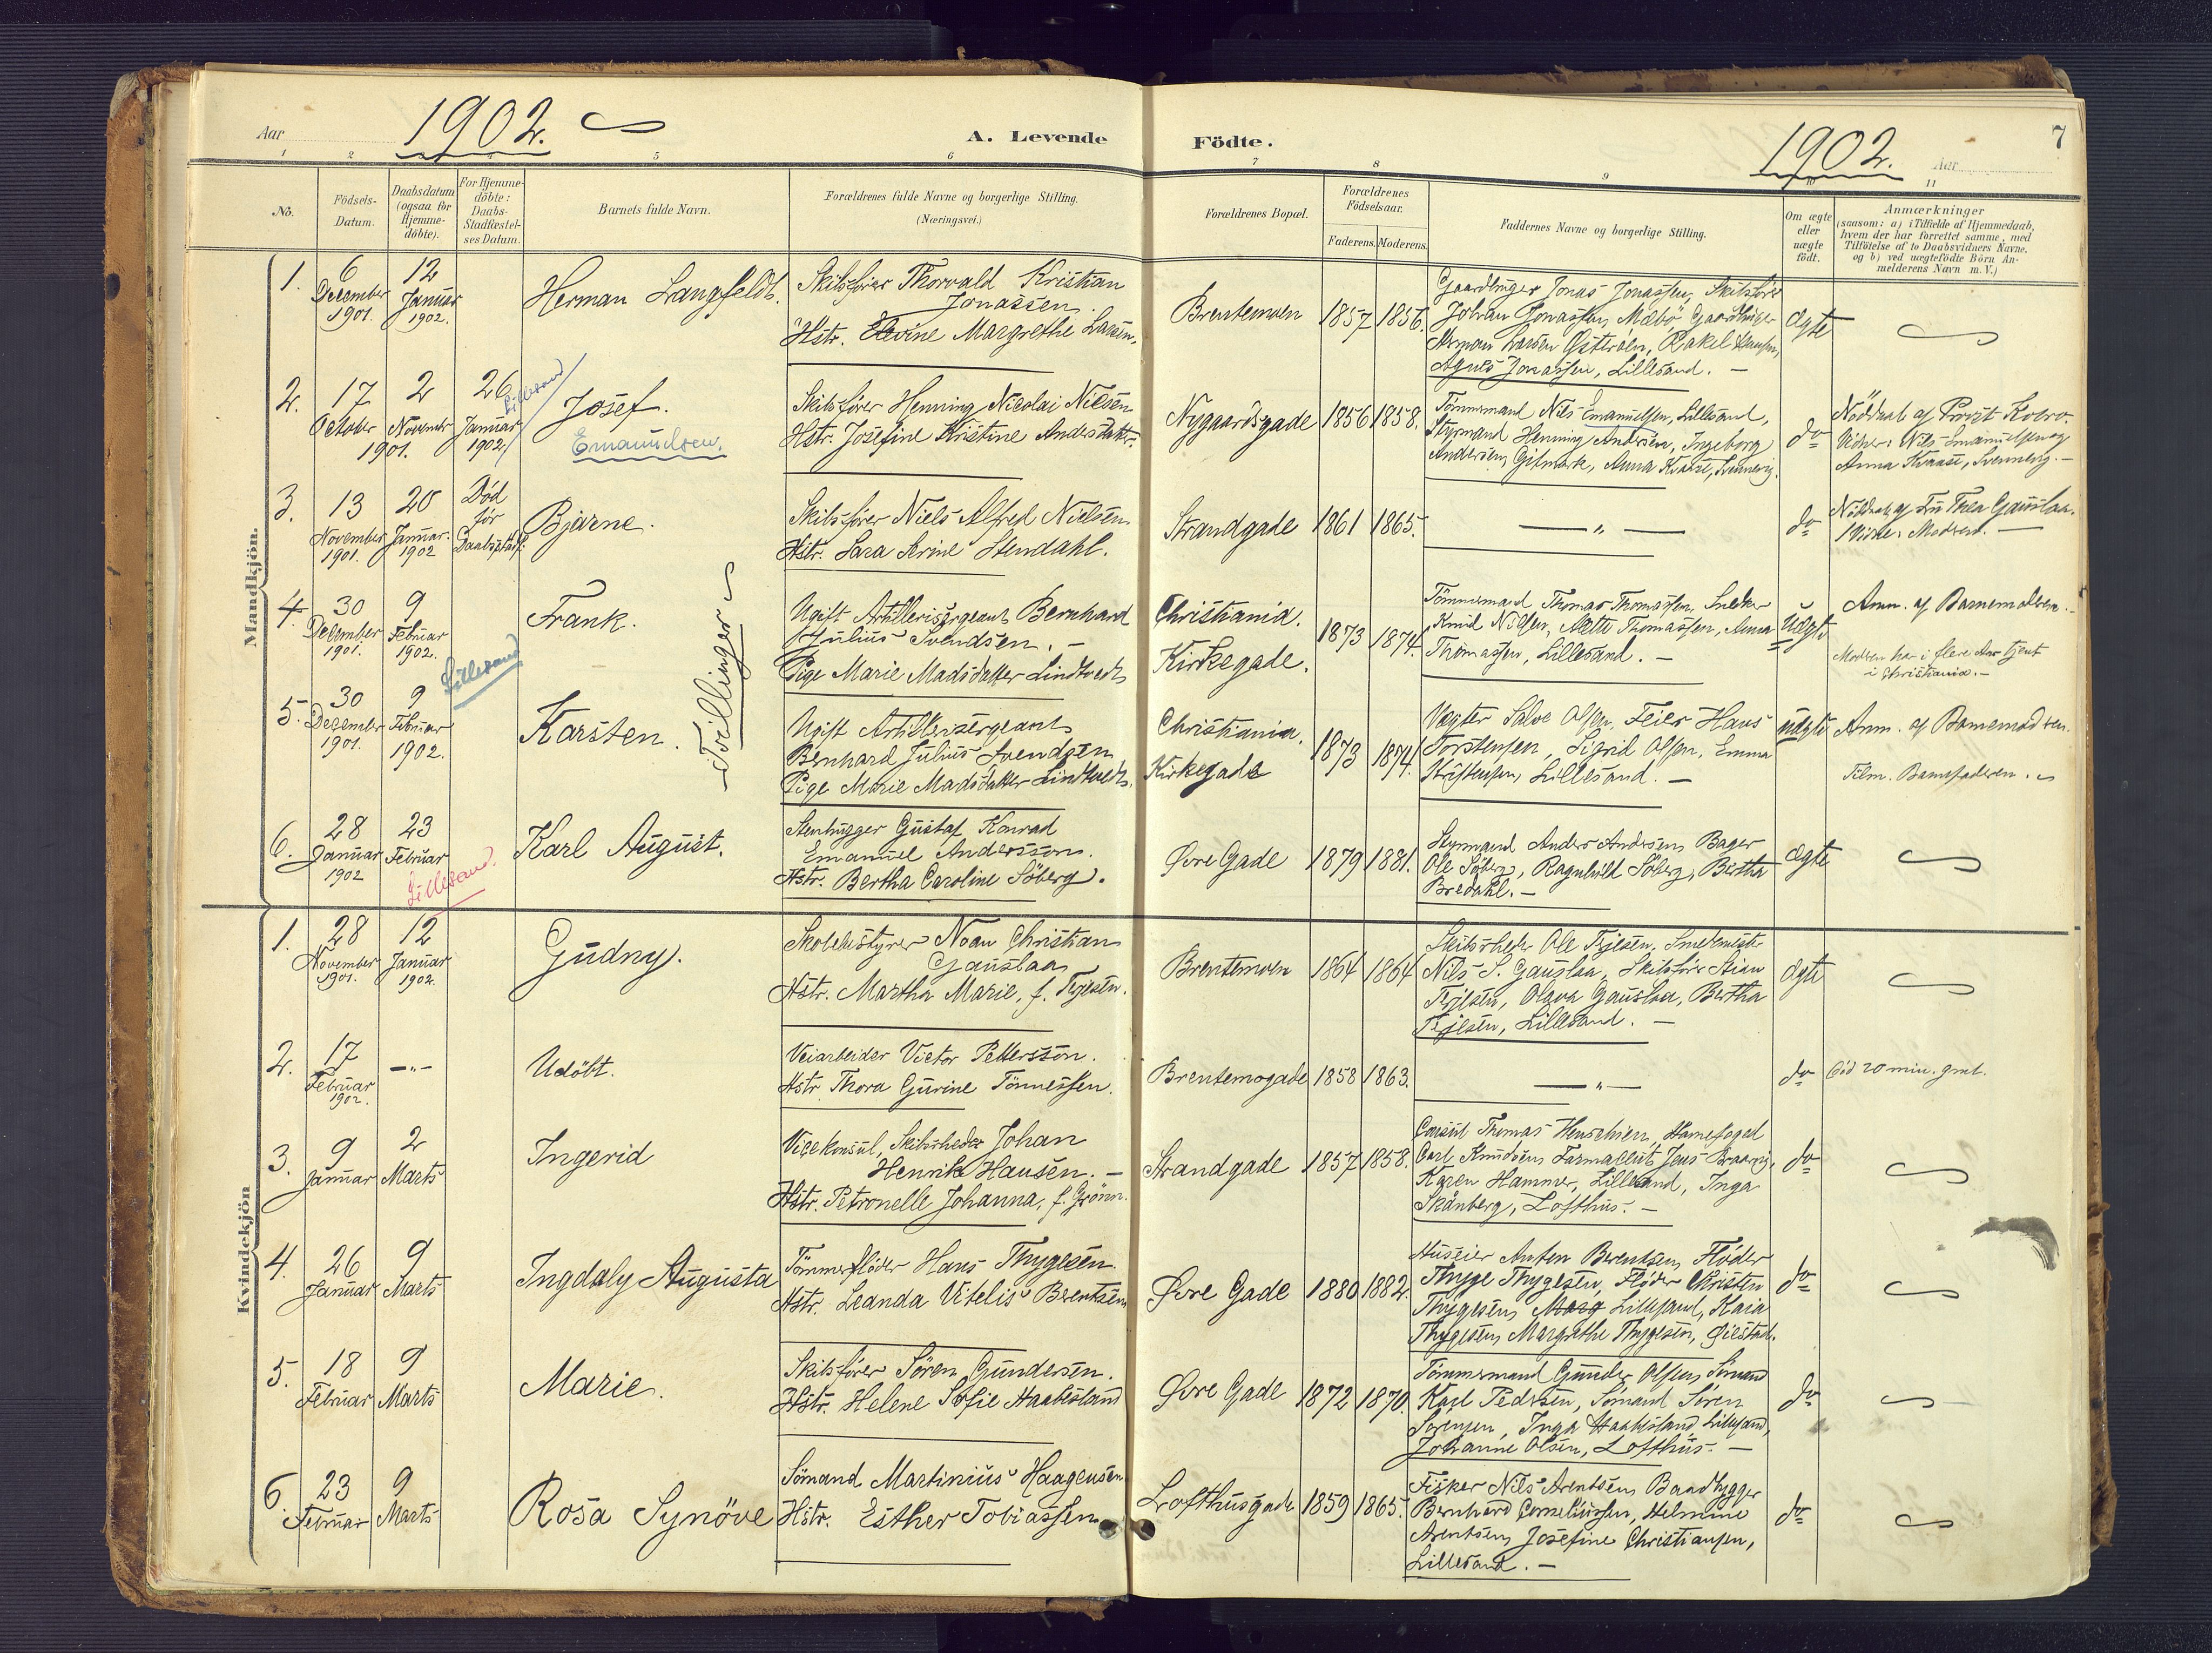 Aar 1902.
A. Levende Födte.
1902. Aar
7
1 2 3 4 5 6 7 8 9 10 11
No.
Födsels-
Datum.
Daabsdatum
(ogsaa for
Hjemme-
döbte).
For Hjemme-
döbte:
Daabs-
Stadfæstel-
ses Datum.
Barnets fulde Navn.
Forældrenes fulde Navne og borgerlige Stilling.
(Næringsvei.)
Forældrenes Bopæl.
Forældrenes
Födselsaar.
Faderens. Moderens.
Faddernes Navne og borgerlige Stilling.
Om ægte
eller
uægte
födt.
Anmærkninger
(saasom: a) i Tilfælde af Hjemmedaab,
hvem der har forrettet samme, med
Tilföielse af to Daabsvidners Navne.
og b) ved uægtefödte Börn An-
melderens Navn m. V.)
Mandkjön.
1.
6
December
1901.
12
Januar
1902.
Herman Langfeldt.
Skibsfører Thorvald Kristian
Jonassen.
Hstr. Elevine Margrethe Larsen.
Brentemoen
1857
1856.
Gaardbruger Jonas Jonassen, Skibsfører
Johan Jonassen, Mæbø, Gaardbruger
Herman Larsen Østerøen, Rakel
Agnes Jonassen, Lillesand. —
ægte
2.
17
October
2
November
1901.
26
Januar
1902.
Lillesand
Josef.
Emanuelsen.
Skibsfører Henning Nicolai Nielsen
Hstr. Josefine Kristine Andersdatter.
Nygaardsgade
1856
1858.
Tömmermand Nils Emanuelsen, Lillesand,
Styrmand Henning Andersen, Ingeborg
Andersen, Gitmark, Anna Kvaase, Svennevig.
do
Nöddaab af Provst
Vidner: Nils Emanuelsen og
Anna Kvaase, Svennevig. —
3.
13
November
1901.
20
Januar.
1902
Död
för
Daabsstadf.
Bjarne.
Skibsfører Niels Alfred Nielsen
Hstr. Sara Serine Stendahl.
Strandgade
1861
1865.
— " —
do
Nöddaab af Fru Thea Gauslaa.
Vidne: Moderen. —
4.
30
December
1901.
9
Februar
1902.
Lillesand
Frank.
Tvillinger
Ugift Artillerisergeant Bernhard
Julius Svendsen. —
Pige Marie Madsdatter Lindtvedt
Christiania.
Kirkegade.
1873
1874.
Tömmermand Thomas Thomassen, Snedker
Knud Nilsen, Mette Thomassen, Anna
Thomassen, Lillesand. —
Uægte
Anm. af Barnemoderen.
Moderen har i flere Aar tjent
i Christiania. —
5.
30
December
1901.
9
Februar
1902.
Karsten.
Ugift Artillerisergeant
Bernhard Julius Svendsen
Pige Marie Madsdatter Lindtvedt.
Christiania.
Kirkegade
1873
1874.
Vægter Salve Olsen, Feier Hans
Torstensen, Sigrid Olsen, Emma
Kristensen, Lillesand. —
uægte
Anm. af Barnemoderen.
Tilm. Barnefaderen.
6.
28
Januar
1902
23
Februar
Lillesand.
Karl August.
Stenhugger Gustaf Konrad
Emanuel Andersson.
Hstr. Bertha Caroline Söberg.
Øvre Gade
1879
1881.
Styrmand Anders Andersen, Bager
Ole Söberg, Ragnhild Söberg, Bertha
Bredahl. —
ægte
Kvindekjön
1.
28
November
1901.
12
Januar
1902.
Gudny.
Skolebestyrer Noan Christian
Gauslaa
Hstr. Martha Marie, f. Terjesen.
Brentemoen
1864
1864
Skibsrheder Ole Terjesen, Smedmester
Nils S. Gauslaa, Skibsfører Stian
Terjesen, Olava Gauslaa, Bertha
Terjesen, Lillesand. —
ægte
2.
17
Februar
1902.
— " —
Udöbt.
Veiarbeider Victor Pettersson.
Hstr. Thora Gurine Tönnessen.
Brentemogade
1858
1863.
— " —
do
Död 20 min. gml.
3.
9
Januar
2
Marts
Ingerid
Vicekonsul, Skibsrheder Johan
Henrik Hansen. —
Hstr. Petronelle Johanna, f. Grönn.
Strandgade
1857
1858.
Consul Thomas Henschien, Havnefoged
Carl Knudsen, Farmaceut Jens Braarvig,
Karen Hammer, Lillesand, Inga
Skånberg, Lofthus. —
do
4.
26
Januar
9
Marts
Ingdaly Augusta
Tömmerflöder Hans Thygesen
Hstr. Leanda Vitelis Berentsen
Øvre Gade
1880
1882.
Huseier Anten Berentsen, Flöder
Thyge Thygesen, Flöder Christen
Thygesen, Marg Lillesand, Kaia
Thygesen, Margrethe Thygesen, Øiestad.
do
5.
18
Februar
9
Marts
Marie.
Skibsfører Sören Gundersen.
Hstr. Helene Sofie Haabesland
Øvre Gade
1872
1870.
Tömmermand Gunder Olsen, Sömand
Karl Pedersen, Sömand Sören
Sörensen, Inga Haabesland, Lillesand,
Johanne Olsen, Lofthus. —
do
6.
23
Februar
9
Marts
Rosa Synöve
Sömand Martinius Haagensen
Hstr. Esther Tobiassen
Lofthusgade
1859
1865.
Fisker Nils Arentsen, Baadbygger
Bernhard Corneliussen, Helmine
Arentsen, Josefine Christiansen,
Lillesand. —
do